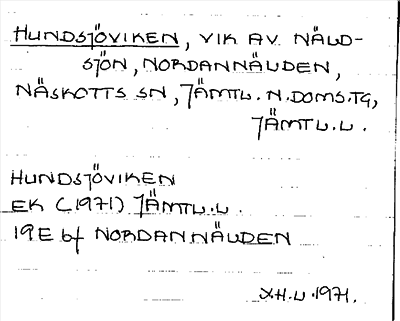 HUNDSJÖVIKEN, VIK AV NÄLD-
SJÖN, NORDANNÄLDEN,
NÄSKOTTS SN, JÄMTL. N. DOMS. TG,
JÄMTL. L.
HUNDSJÖVIKEN
EK (1971) JÄMTL. L.
19E 6f NORDANNÄLDEN
1971.